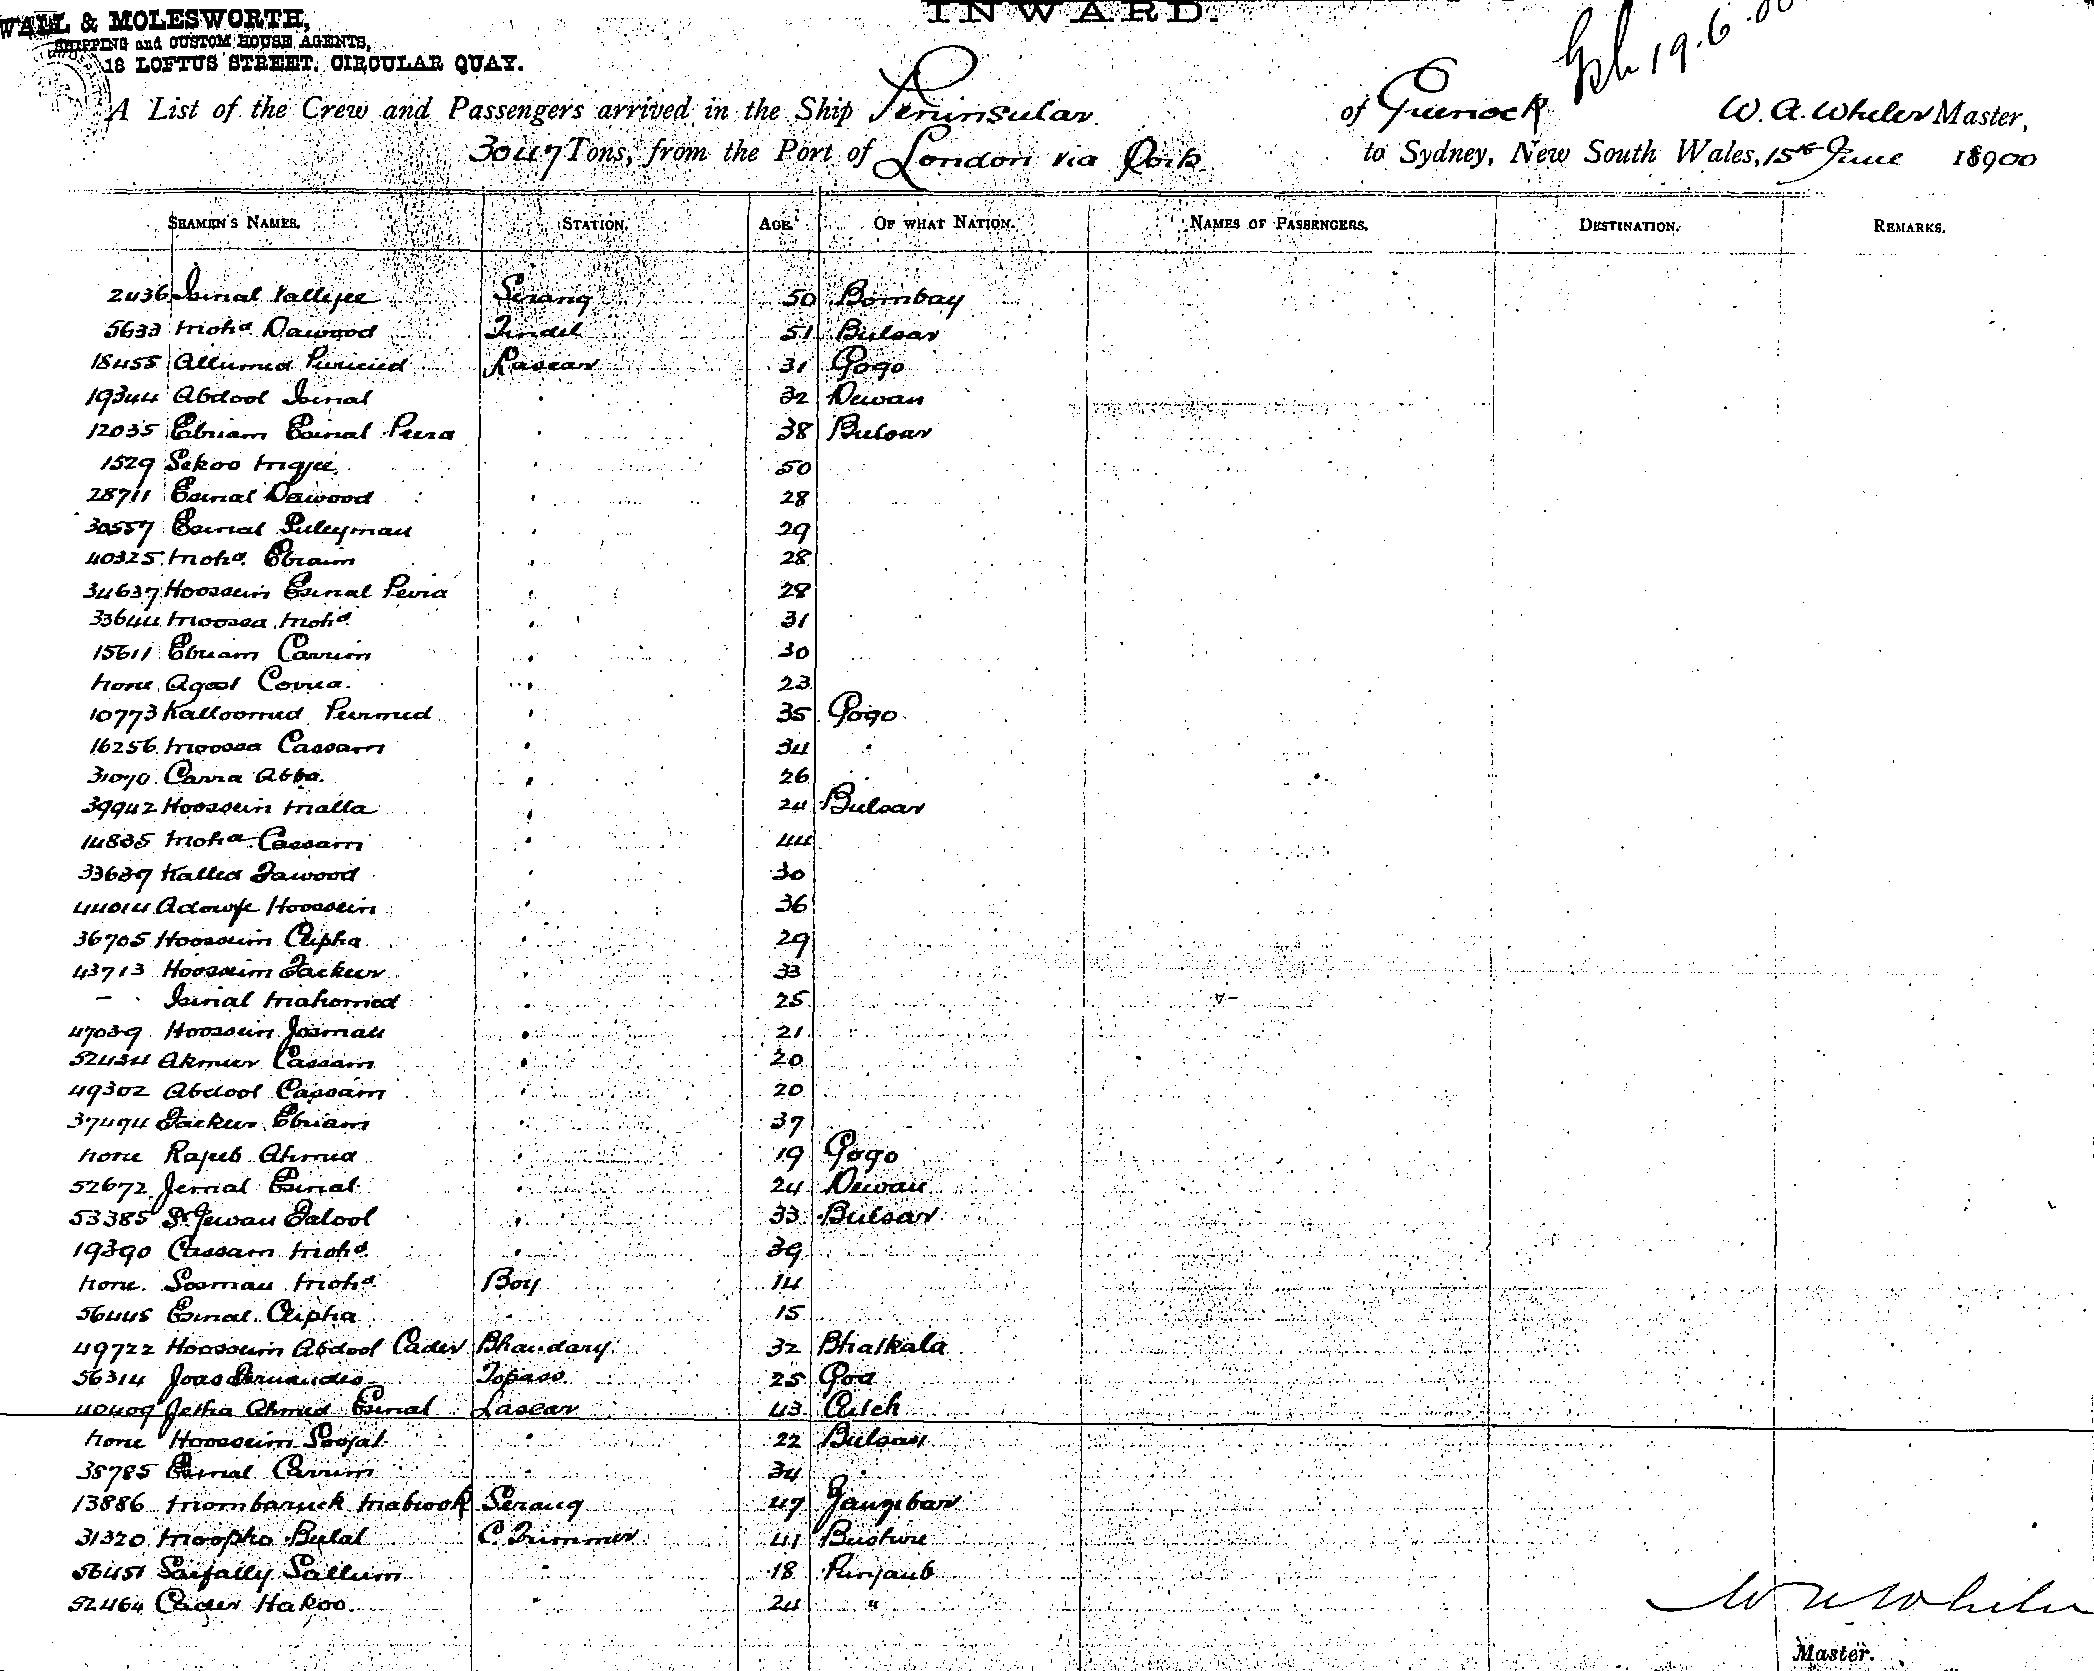 INWARD.
WALL & MOLESWORTH,
SHIPPING and CUSTOM HOUSE AGENTS,
18 LOFTUS STREET, CIRCULAR QUAY.
19.6.00
A List of the Crew and Passengers arrived in the Ship Peninsular of Greenock W. A. Wheler Master,
3047 Tons, from the Port of London via Ports to Sydney, New South Wales, 15th June 18900
SEAMEN'S NAMES. STATION. AGE. OF WHAT NATION. NAMES OF PASSENGERS. DESTINATION. REMARKS.
2436 Ismal Vallejee Serang 50 Bombay
5633 Mohd Dawood Tindel 51 Bulsar
18455 Allumed Lascar 31 Gogo
19344 Abdool Ismal " 32 Dewan
12035 Ebriam Esmal Peera " 38 Bulsar
1529 Sekoo " 50
28711 Esmal Dawood " 28
30557 Esmal Suleyman " 29
40325 Mohd Ebraim " 28
34637 Hoossein Esmal Peira " 28
33644 Moossa Mohd " 31
15611 Ebriam Carrim " 30
None Agool " 23
10773 Kalloomed Peermed " 35 Gogo
16256 Moossa Cassam " 34 "
31070 Carra Abba " 26
39942 Hoossein Malla " 24 Bulsar
14835 Mohd Cassam " 44
33639 Kalled Dawood " 30
44014 Hoossein " 36
36705 Hoossein Clipha " 29
43713 Hoossein Fackur " 33
- Ismal Mahomed " 25
47039 Hoossein Josmau " 21
52434 Akmur Cassam " 20
49302 Abdool Cassam " 20
37494 Fackur Ebriam " 37
None Rajeb Ahmed " 19 Gogo
52672 Jemal Esmal " 24 Dewan
53385 Sk Jewan " 33 Bulsar
19390 Cassam Mohd " 39
None Sosman Mohd Boy 14
56445 Esmal Clipha " 15
49722 Hoossein Abdool Cader Bhandary 32 Bhatkala
56314 Joas Fernandes Topass 25 Goa
40409 Jetha Ahmed Esmal Lascar 43 Cutch
None Hoossein " 22 Bulsar
38785 Esmal Carrim " 34
13886 Mombaruck Mabrook Serang 47 Zanzibar
31320 Bulal C. Trimmer 41 Bushire
56451 Saifally Sallum " 18 Punjaub
52464 Cader Hakoo " 24 "
W A Wheler
Master.